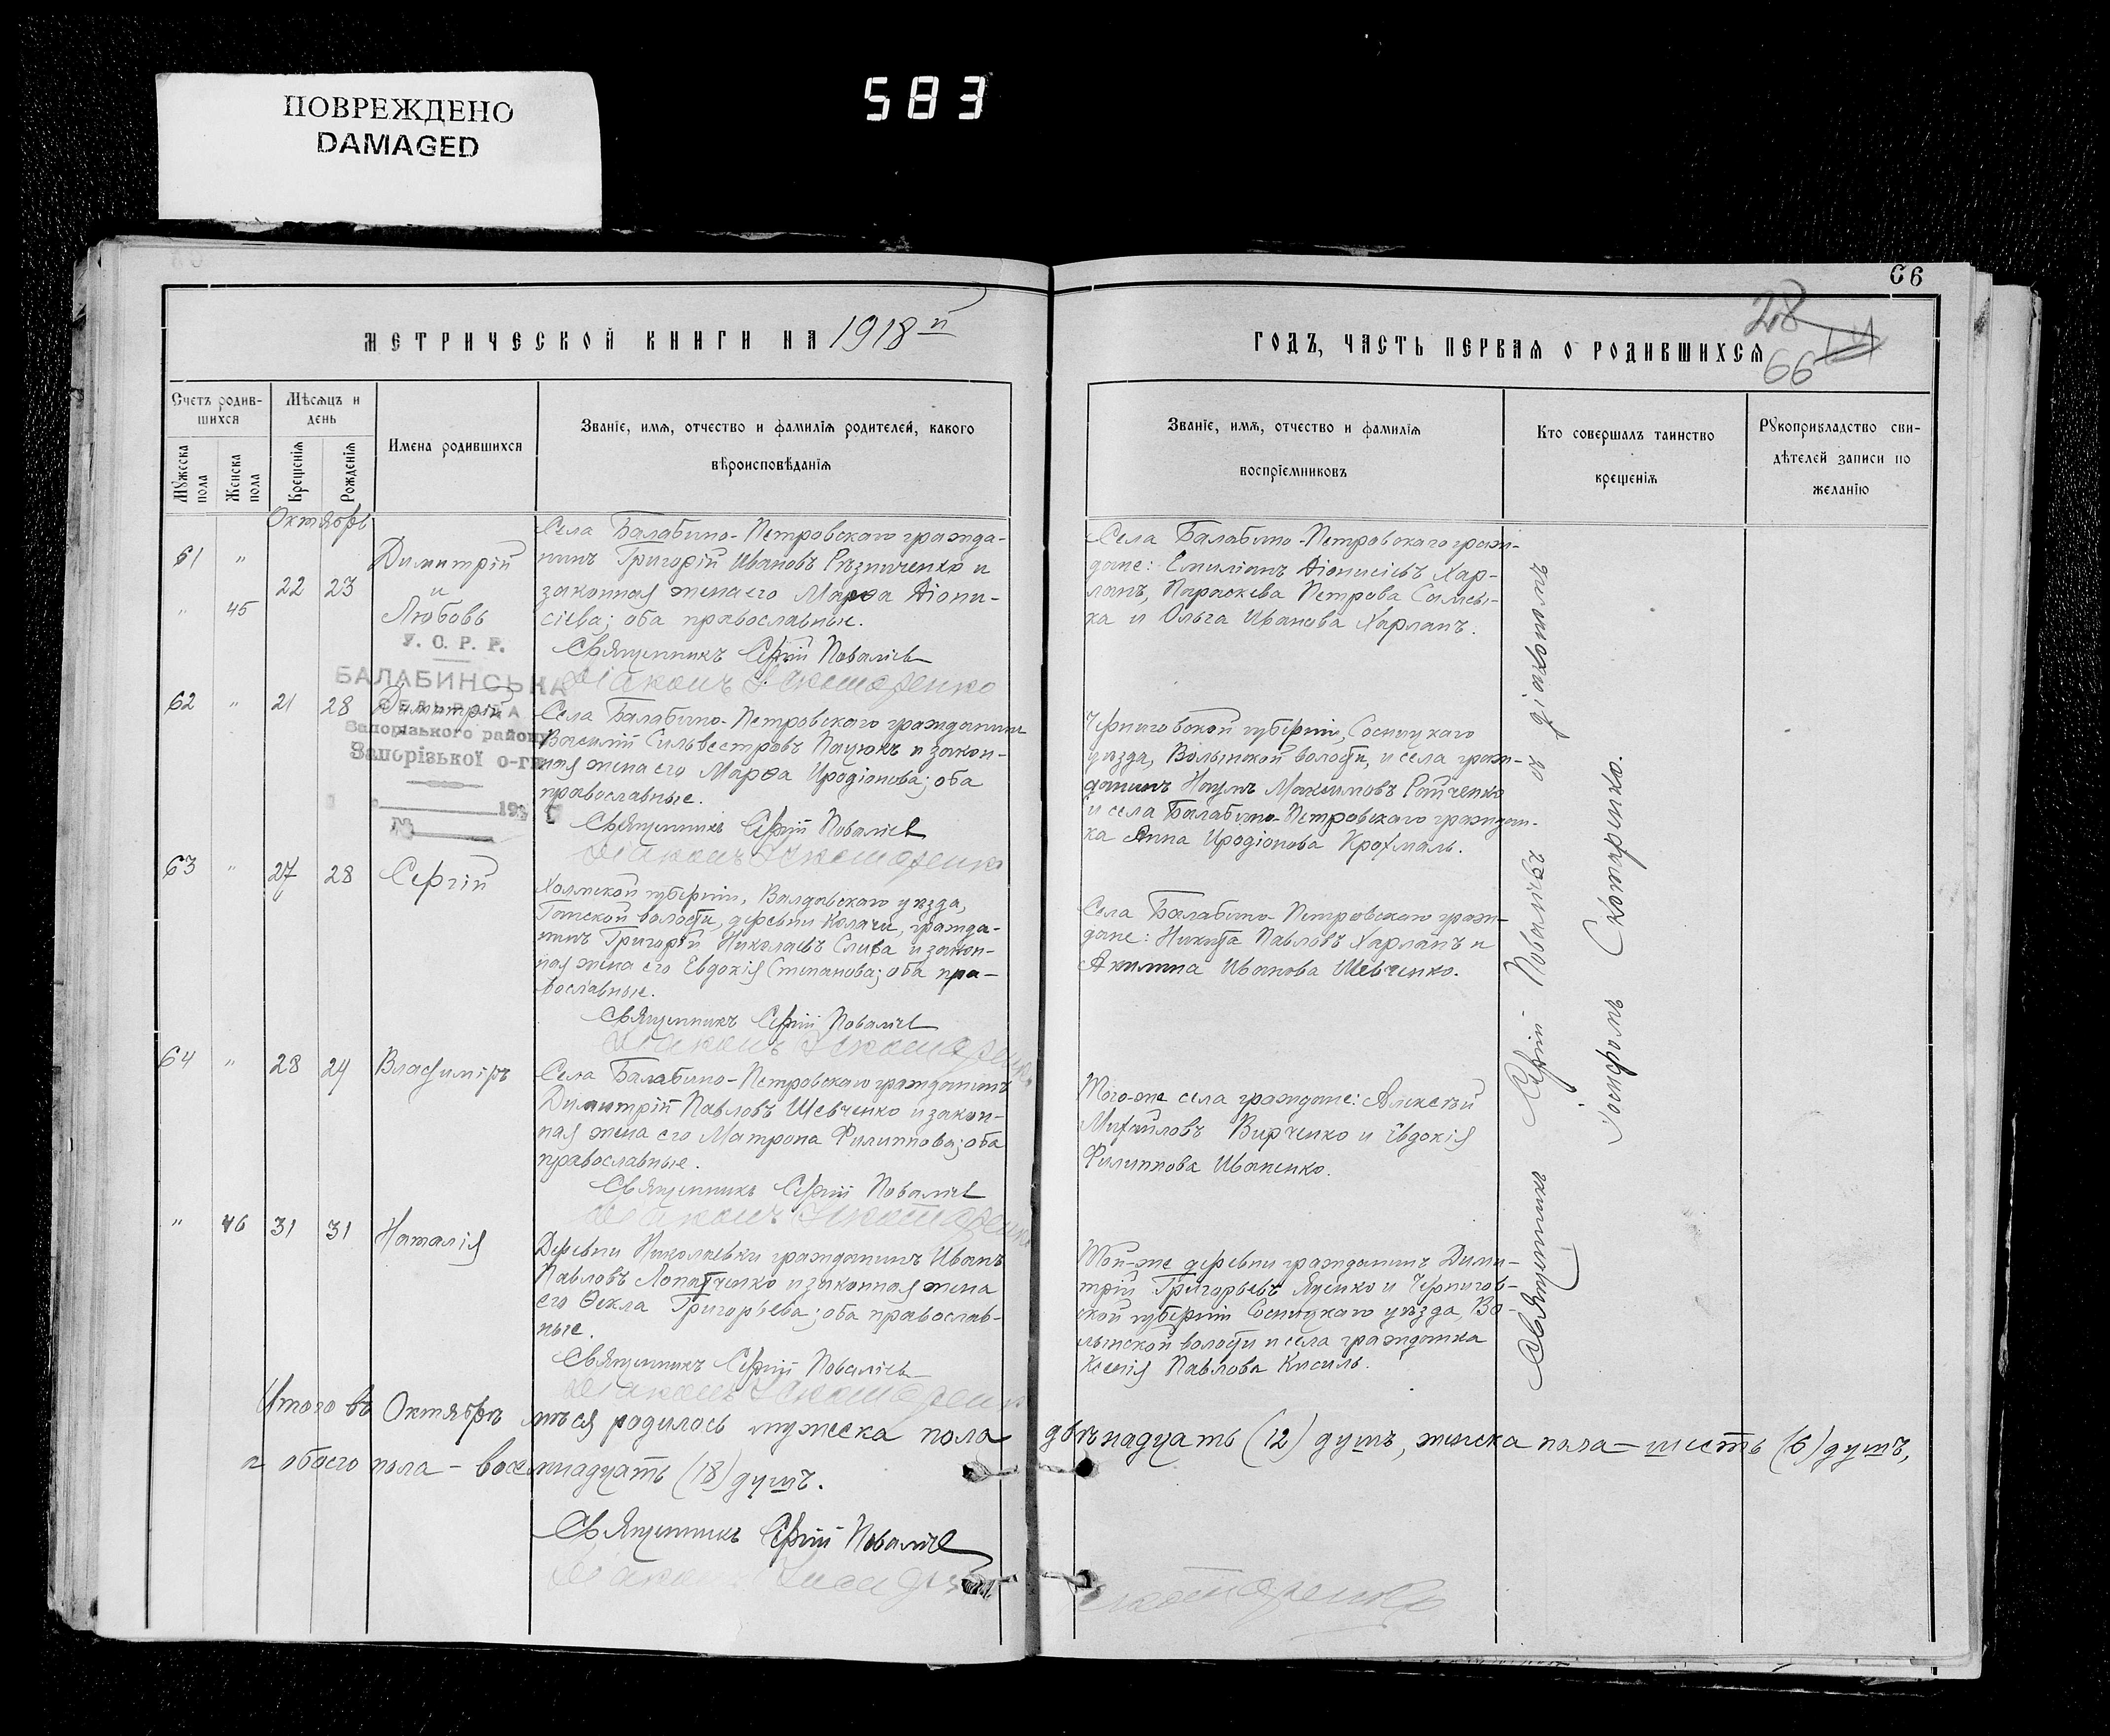 ПОВРЕЖДЕНО
DAMAGED
583
66
28
66
МЕТРИЧЕСКОЙ КНИГИ НА 1918й
ГОДЪ, ЧАСТЬ ПЕРВАЯ О РОДИВШИХСЯ
Счетъ родив-
шихся
Мужеска пола
Женска пола
Мѣсяцъ и
день
Крещенія
Рожденія
Имена родившихся
Званіе, имя, отчество и фамилія родителей, какого
вѣроисповѣданія
Званіе, имя, отчество и фамилія
воспріемниковъ
Кто совершалъ таинство
крещенія
Рукоприкладство сви-
дѣтелей записи по
желанію
Октябрь
61 "
" 45
22 23
Димитрій
и
Любовь
Села Балабино-Петровскаго гражда-
нинъ Григорій Ивановъ Рѣзниченко и
законная жена его Марѳа Діони-
сіева; оба православные.
Священникъ Сергій Поваліевъ
Діаконъ І Скотаренко
Села Балабино-Петровскаго граж-
дане: Емиліанъ Діонисіевъ Хар-
ланъ, Параскева Петрова
ка и Ольга Ивановна Харланъ.
У. С. Р. Р.
БАЛАБИНСЬКА
СІЛЬРАДА
Запорізького району
Запорізької о-ги
192
№
62 " 21 28 Димитрій
Села Балабино-Петровскаго гражданинъ
Василій Сильвестровъ Пацюкъ и закон-
ная жена его Марѳа Иродіонова; оба
православные.
Священникъ Сергій Поваліевъ
Діаконъ І Скотаренко
Черниговской губерніи, Сосницкаго
уѣзда, Волынской волости, и села граж-
данинъ Наумъ Максимовъ Райченко
и села Балабино-Петровскаго граждан-
ка Анна Иродіонова Крохмаль.
63 " 27 28 Сергій
Холмской губерніи, Влодавскаго уѣзда,
волости, деревни Колачи, гражда-
нинъ Григорій Николаевъ Слива и закон-
ная жена его Евдокія Степанова; оба пра-
вославные.
Священникъ Сергій Поваліевъ
Діаконъ І Скотаренко
Села Балабино-Петровскаго граж-
дане: Никита Павловъ Харланъ и
Акилина Иванова Шевченко.
64 " 28 24 Владиміръ
Села Балабино-Петровскаго гражданинъ
Димитрій Павловъ Шевченко и закон-
ная жена его Матрона Филиппова; оба
православные.
Священникъ Сергій Поваліевъ
Діаконъ І Скотаренко
Того-же села граждане: Алексѣй
Михайловъ Вирченко и Евдокія
Филиппова Иваненко.
" 46 31 31 Наталія
Деревни Николаевки гражданинъ Иванъ
Павловъ Лопатченко и законная жена
его Ѳекла Григорьева; оба православ-
ные.
Священникъ Сергій Поваліевъ
Діаконъ І Скотаренко
Той-же деревни гражданинъ Дими-
трій Григорьевъ Яценко и Чернигов-
ской губерніи Сосницкаго уѣзда, Во-
лынской волости и села гражданка
Ксенія Павлова Кисиль.
Священникъ Сергій Поваліевъ съ діакономъ
Іосифомъ Скотаренко.
Итого въ Октябрѣ мѣся родилось мужеска пола двѣнадцать (12) душъ, женска пола – шесть (6) душъ,
а обоего пола – восемнадцать (18) душъ.
Священникъ Сергій Поваліевъ
Скотаренко